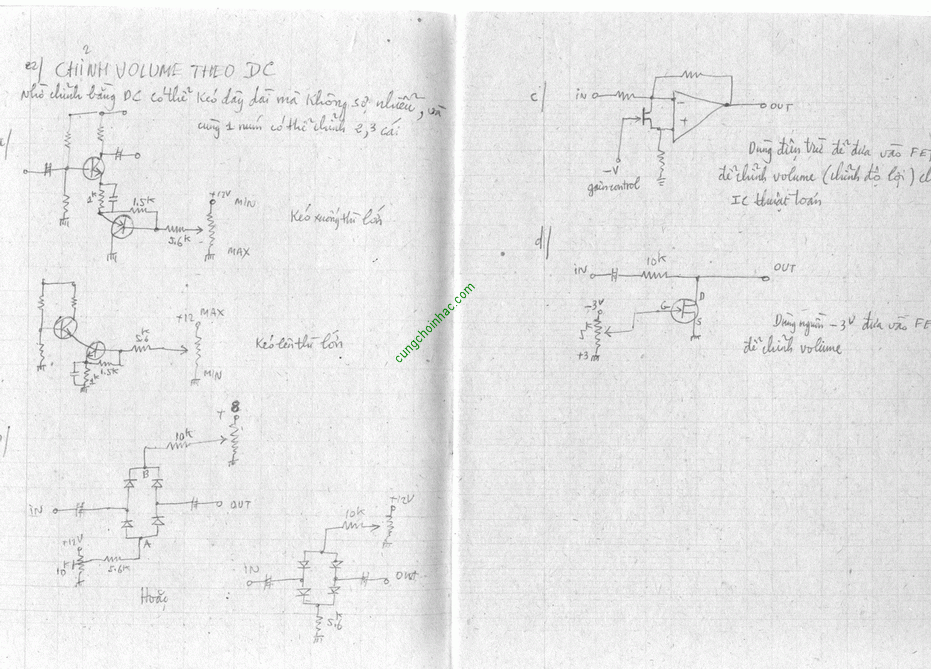 2
e2/ CHỈNH VOLUME THEO DC
Nhờ chỉnh bằng DC có thể kéo dây dài mà không sợ nhiễu, và
cùng 1 núm có thể chỉnh 2, 3 cái
a/
1K
1.5K
5.6K
+12V
MIN
MAX
Kéo xuống thì lớn
+12
MAX
MIN
5.6K
1.5K
1K
Kéo lên thì lớn
b/
+8
10K
B
IN
OUT
A
+12V
10K
5.6K
Hoặc
+12V
10K
IN
OUT
5.6K
c/
IN
OUT
-
+
-V
gain control
Dùng điện trở để đưa vào FET
để chỉnh volume (chỉnh độ lợi) ch
IC thuật toán
d/
IN
10K
OUT
-3V
G
D
S
5K
+3
Dùng nguồn -3V đưa vào FE
để chỉnh volume
cungchoinhac.com